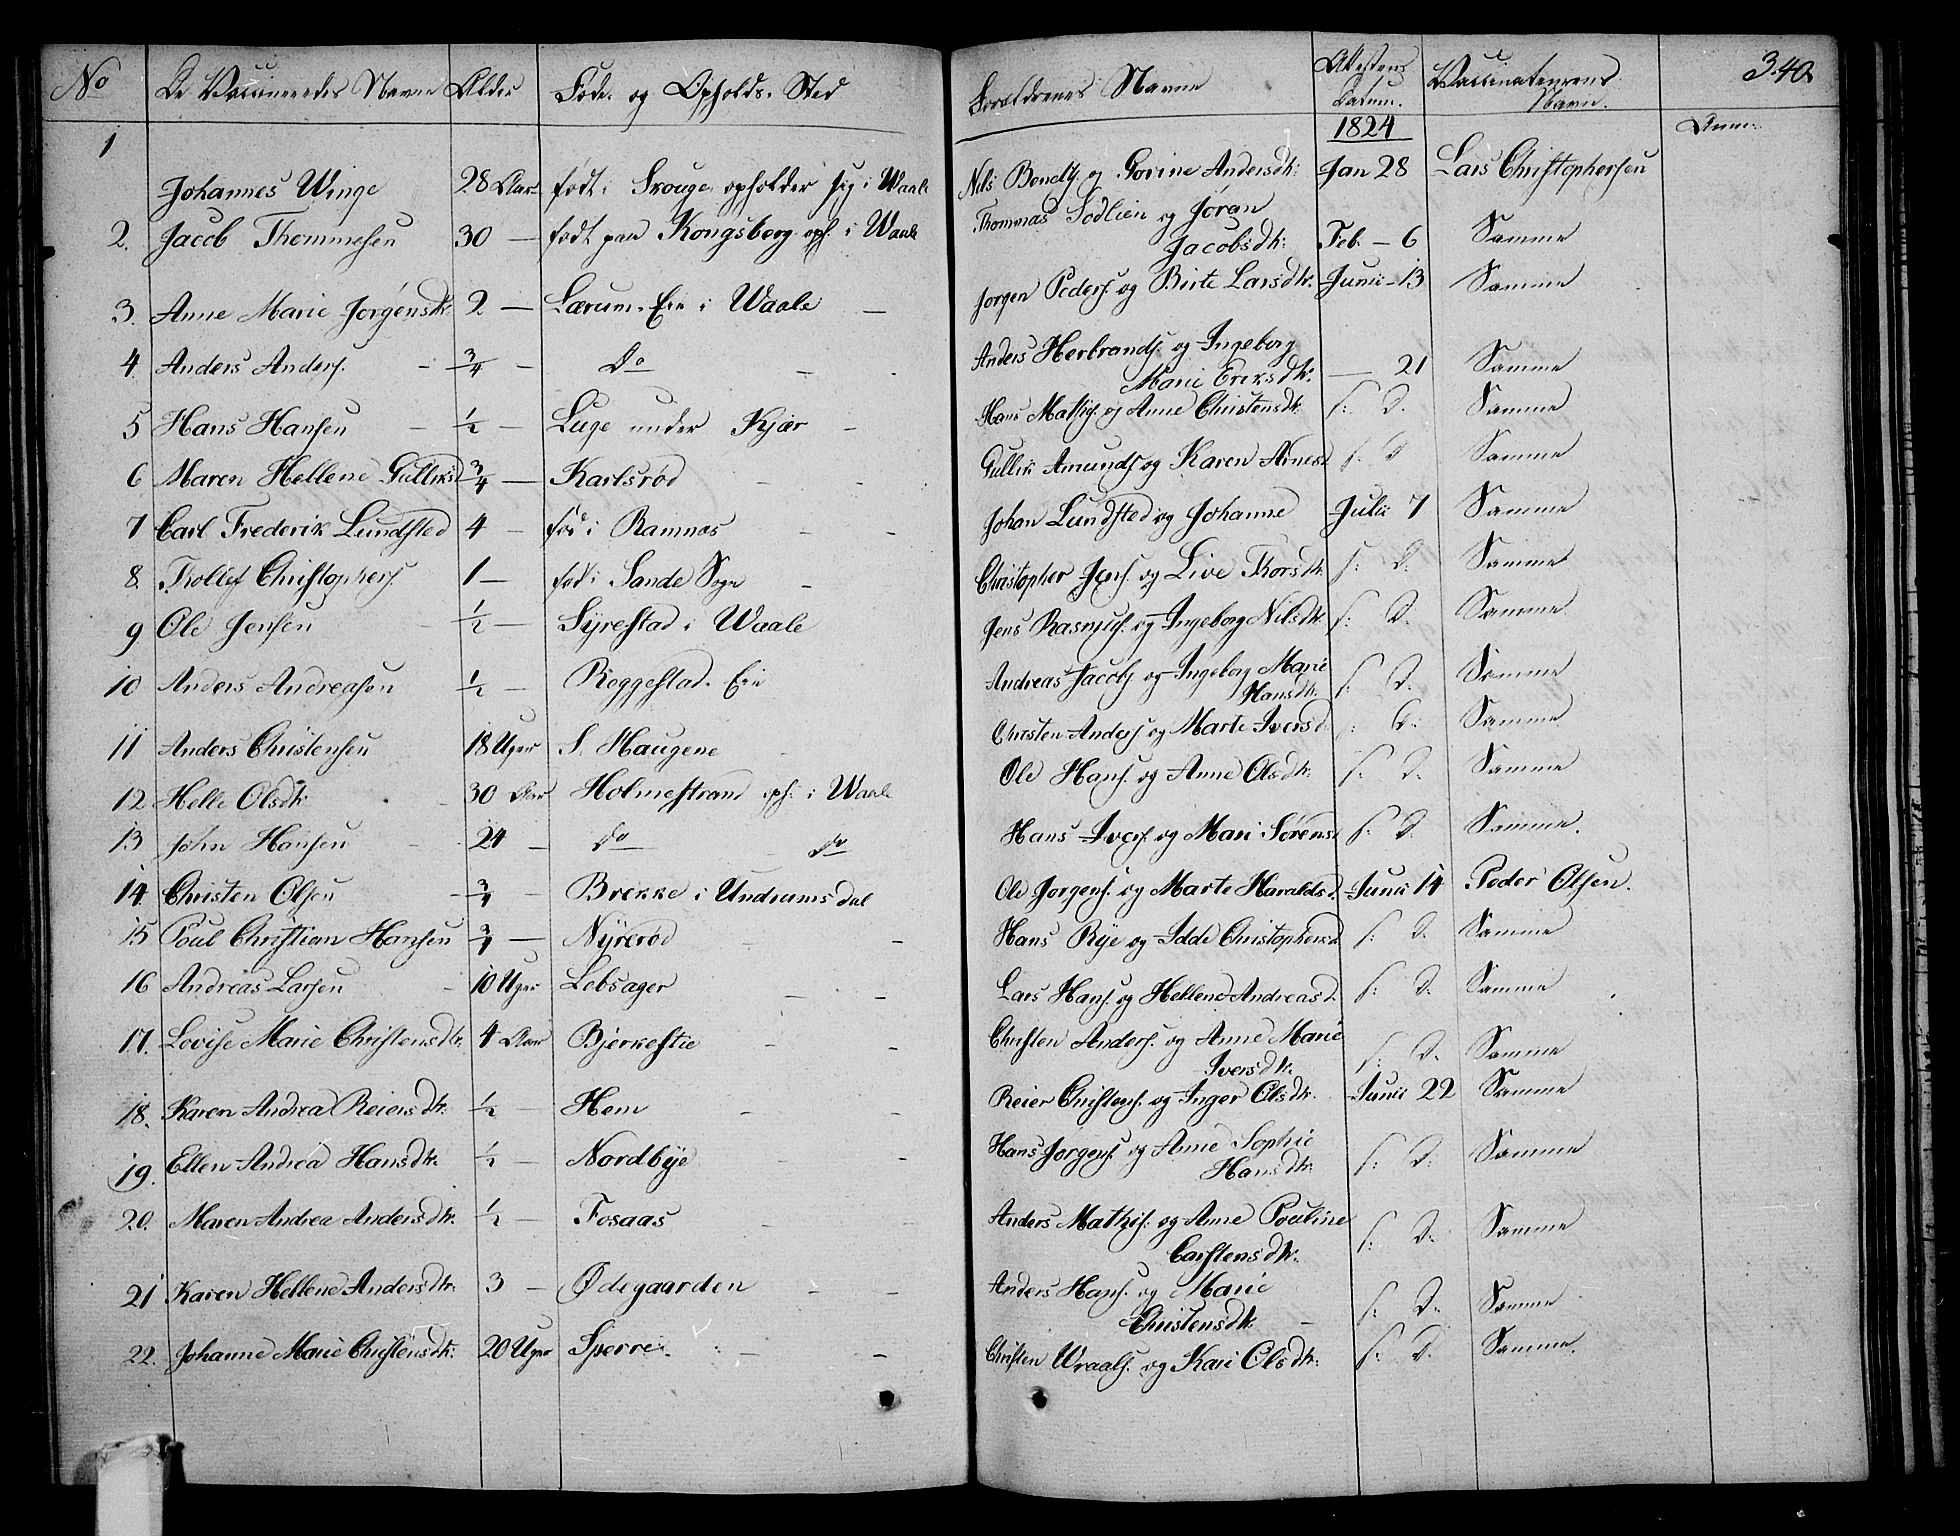 No De Vaccineredes Navne Alder Føde- og Opholds-Sted Forældrenes Navne Attestens Datum. Vaccinateurens Navn. 340
1824 Anm:
1 Johannes Winge 28 Aar født i opholder sig i Waale Nils Bendts og Gorine Andersdtr: Jan 28 Lars Christophersen
2. Jacob Thommesen 30 — født paa Kongsberg oph. i Waale Thommas Sodlien og Jøran
Jacobsdtr: Feb. — 6 Samme
3. Anne Marie Jørgensdtr. 2 — Lærum-Eie i Waale — Jørgen Peders. og Birte Larsdtr. Junii - 13 Samme
4. Anders Anders. - 3/4 — Do — Anders Herbrands. og Ingeborg
Marie Eriksdtr. — 21 Samme
5 Hans Hansen - 1/2 — Luge under Kjær — Hans Mathis. og Anne Christensdtr. s: D. Samme
6 Maren Hellene Gulliksd 3/4 — Karlsrød - - Gullik Amunds og Karen Arnesd s: D Samme
7 Carl Frederik Lundsted 4 — fød i Ramnæs - - Johan Lundsted og Johanne Julii 7 Samme
8. Tollef Christophers. 1 — fød i Sande Sogn - Christopher Jens. og Live Thorsdtr. s: D. Samme
9 Ole Jensen - 1/2 — Syrestad i Waale Jens Rasmus. og Ingeborg Nilsdtr s: D. Samme
10 Anders Andreasen 1/2 — Roggestad. Eie Andreas Jacobs og Ingeborg Marie
Hansdtr. s: D. Samme
11 Anders Christensen 18 Uger S. Haugene - Christen Anders og Marte Iversd s: D. Samme
12. Helle Olsdtr. - 30 Aar Holmestrand oph. i Waale Ole Hans. og Anne Olsdtr. s: D. Samme
13 John Hansen - 24 — do - do Hans Ivers. og Mari Sørensd s: D. Samme.
14. Christen Olsen - 3/4 — Brekke i Undrumsdal Ole Jørgens. og Marte Haraldsd. Junii 14 Peder Olsen.
15 Poul Christian Hansen 3/4 — Nyrerød - - Hans Rye og Idde Christophersd. s: D. Samme
16 Andreas Larsen - 10 Uger Lebsager - - Lars Hans. og Hellene Andreasd. s: D. Samme
17. Lovise Marie Christensdtr. 4 Aar Bjerkestie - - Christen Anders. og Anne Marie
Iversdtr. s: D. Samme
18. Karen Andrea Reiersdtr. 1/2 — Hem - - Reier Christens. og Inger Olsdtr. Junii 22 Samme
19. Ellen Andrea Hansdtr. 1/2 — Nordbye - - Hans Jørgens. og Anne Sophie
Hansdtr. s: D. Samme
20. Maren Andrea Andersdtr. 1/2 — Fosaas - - Anders Mathis. og Anne Pouline
Carstensdtr. s: D. Samme
21 Karen Hellene Andersdtr. 3 — Ødegaarden - - Anders Hans. og Marie
Christensdtr. - s: D. Samme
22. Johanne Marie Christensdtr. 20 Uger Sperre. - - Christen Wraals. og Kari Olsdtr. s: D. Samme.